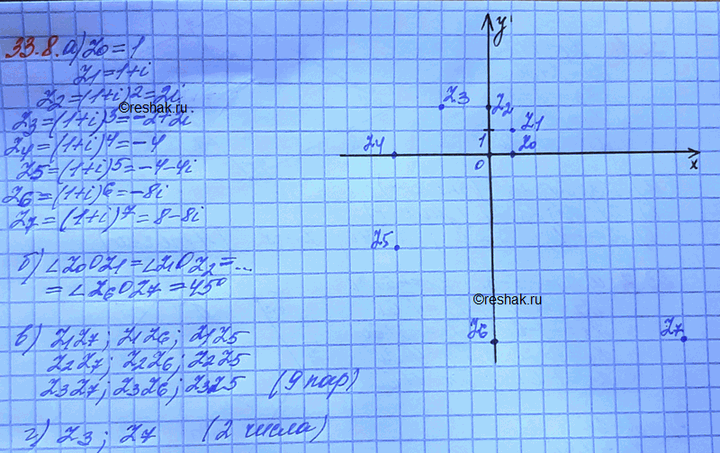 33.8. а) z0 = 1
z1 = 1+i
z2 = (1+i)2 = 2i
z3 = (1+i)3 = -2+2i
z4 = (1+i)4 = -4
z5 = (1+i)5 = -4-4i
z6 = (1+i)6 = -8i
z7 = (1+i)7 = 8-8i
б) ∠z0Oz1 = ∠z1Oz2 = ...
= ∠z6Oz7 = 45°
в) z1z7; z1z6; z1z5
z2z7; z2z6; z2z5
z3z7; z3z6; z3z5 (9 пар)
г) z3; z7 (2 числа)
y
z3
z2
z1
1
z4
z0
0
x
z5
z6
z7
©reshak.ru
©reshak.ru